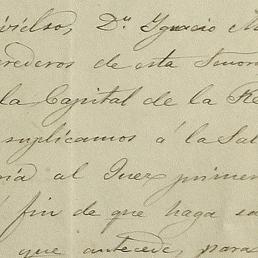 Dn Ygnacio
rederos de esta Senor
la Capital de la Re
suplicamos á la Sal
ria al Juez prime
fin de que haga sa
que antecede, para